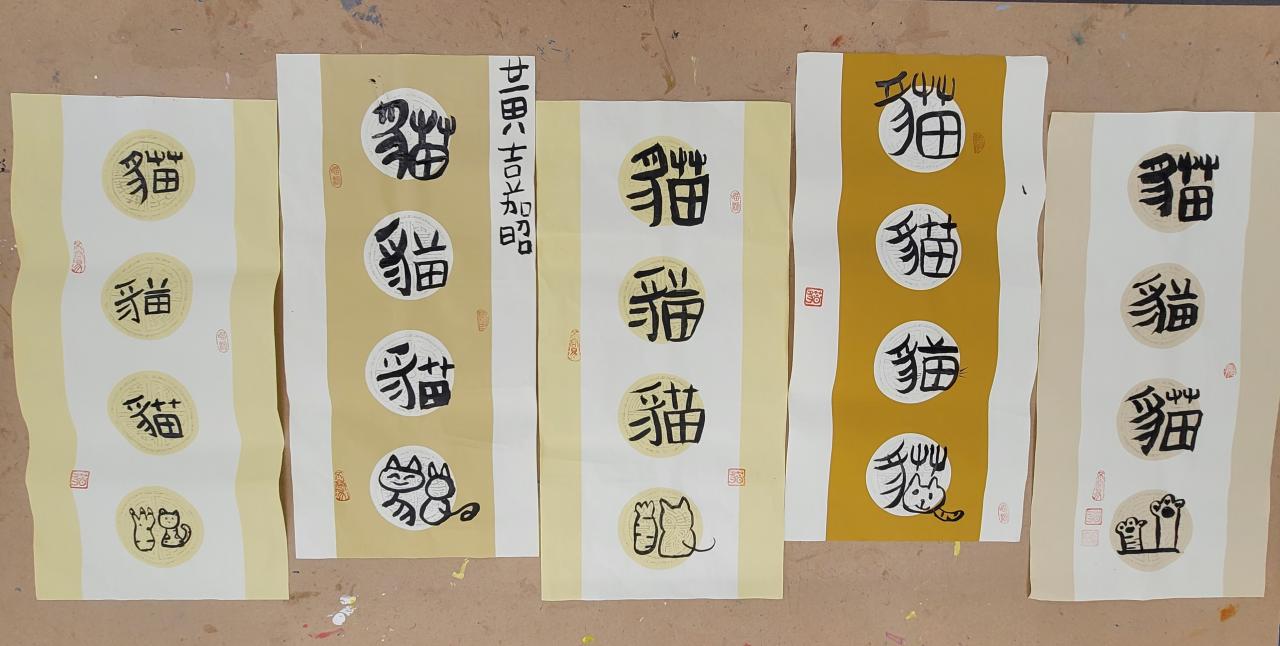 貓貓貓
黃嘉昭
貓貓貓
貓貓貓
貓貓貓貓
貓
貓貓貓